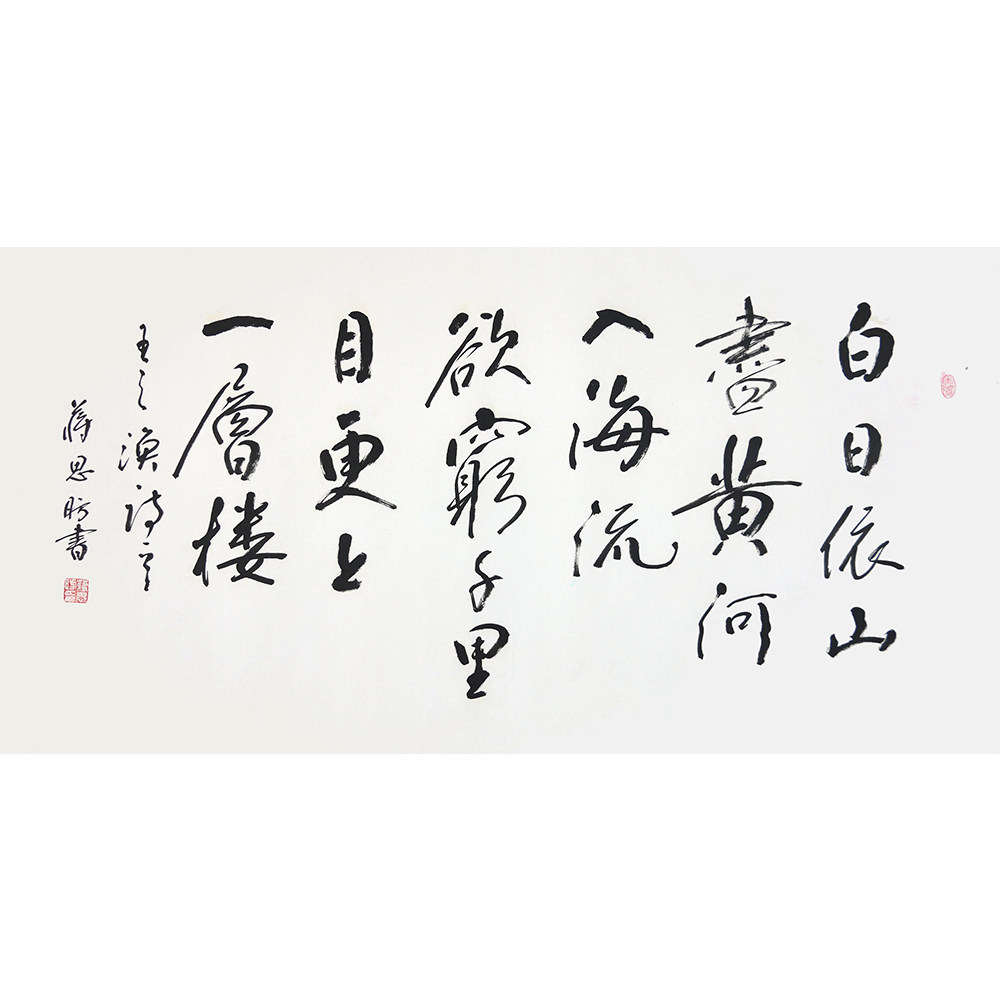 白日依山
盡黄河
入海流
欲窮千里
目更上
一層楼
王之渙詩一首
蒋思昉書